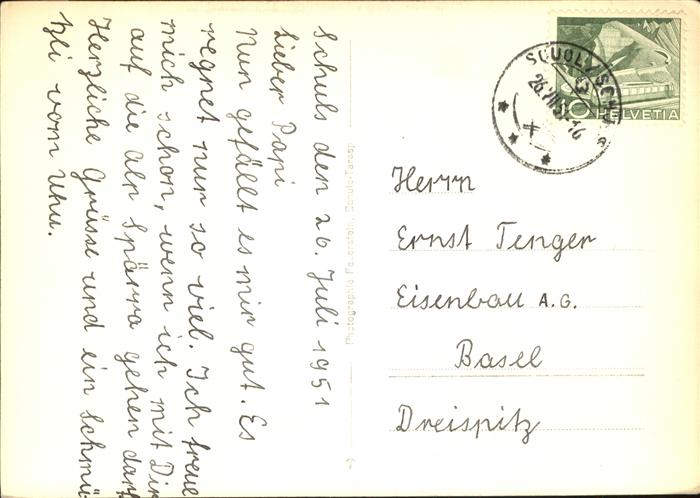 Schuls den 26. Juli 1951
Lieber Papi
Nun gefällt es mir gut. Es
regnet nur so viel. Ich freue
mich schon, wenn ich mit Dir
auf die Alp Spärra gehen darf.
Herzliche Grüsse und ein Schmü-
tzli vom Uhu.
Photographie Feuerstein, Schuls-Tarasp
SCUOL/SCHULS
26.VII.51-16
HELVETIA
Herrn
Ernst Tenger
Eisenbau A.G.
Basel
Dreispitz